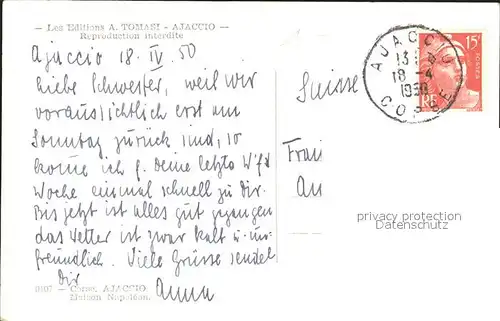 — Les Editions A. TOMASI - AJACCIO —
Reproduction interdite
Ajaccio 18. IV. 50
Liebe Schwester, weil wir
voraussichtlich erst am
Sonntag zurück sind, so
komme ich Deine letzte
Woche einmal schnell zu Dir.
Bis jetzt ist alles gut gegangen
das Wetter ist zwar kalt u. un-
freundlich. Viele Grüsse sendet
Dir Anna
— Corse. AJACCIO
Maison Napoléon.
Suisse
Frau
An
AJACCIO
13
18 - 4
1950
CORSE
15F
POSTES
RF
privacy protection
Datenschutz